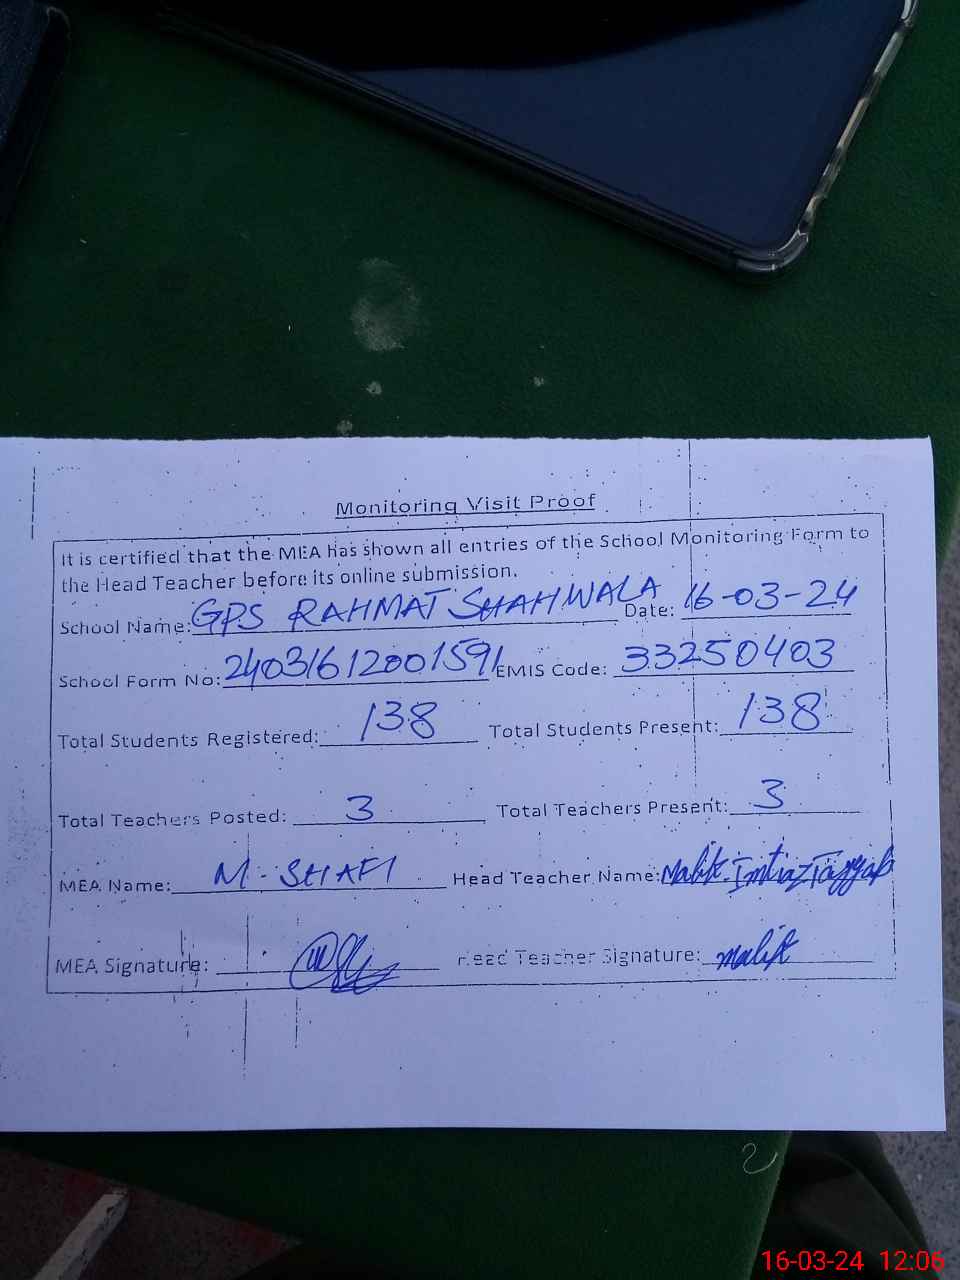 Monitoring Visit Proof
It is certified that the MEA has shown all entries of the School Monitoring Form to
the Head Teacher before its online submission.
School Name: GPS RAHMAT SHAHWALA Date: 16-03-24
School Form No: 24031612001591 EMIS Code: 33250403
Total Students Registered: 138 Total Students Present: 138
Total Teachers Posted: 3 Total Teachers Present: 3
MEA Name: M. SHAFI Head Teacher Name: Malik Imtiaz Tayyab
MEA Signature: Head Teacher Signature: malik
16-03-24 12:06